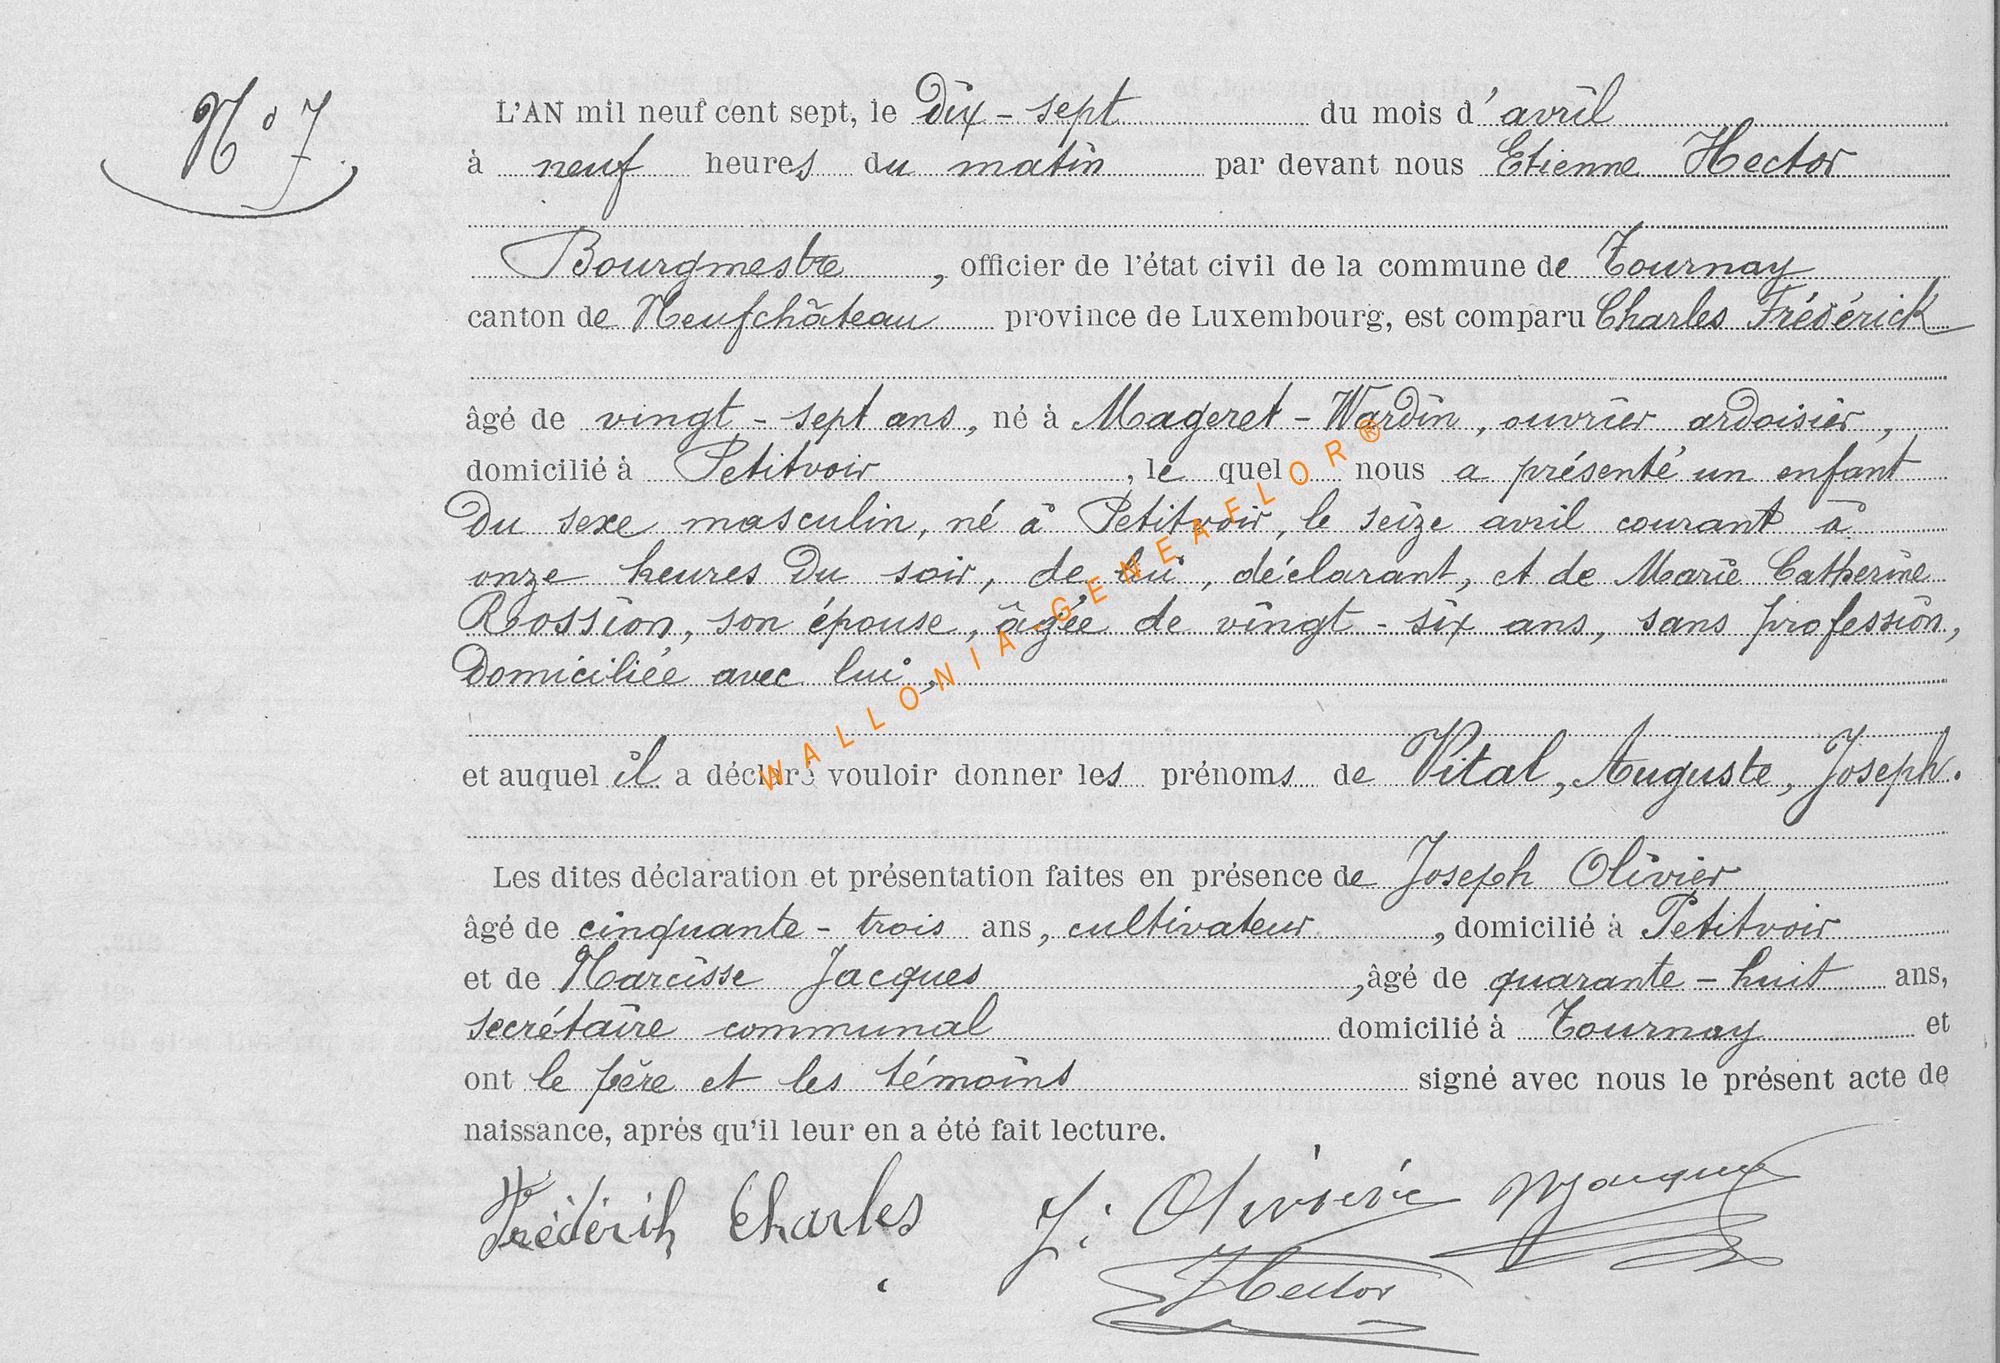 N° 7.
L'AN mil neuf cent sept, le Dix-sept du mois d'avril
à neuf heures du matin par devant nous Etienne Hector
Bourgmestre, officier de l'état civil de la commune de Tournay
canton de Neufchâteau province de Luxembourg, est comparu Charles Frédérick
âgé de vingt-sept ans, né à Mageret-Wardin, ouvrier ardoisier,
domicilié à Petitvoir, le quel nous a présenté un enfant
Du sexe masculin, né à Petitvoir, le seize avril courant à
onze heures Du soir, de lui, déclarant, et de Marie Catherine
Rossion, son épouse, âgée de vingt-six ans, sans profession,
Domiciliée avec lui,
et auquel il a déclaré vouloir donner les prénoms de Vital, Auguste, Joseph.
Les dites déclaration et présentation faites en présence de Joseph Olivier
âgé de cinquante-trois ans, cultivateur, domicilié à Petitvoir
et de Narcisse Jacques, âgé de quarante-huit ans,
secrétaire communal domicilié à Tournay et
ont le père et les témoins signé avec nous le présent acte de
naissance, après qu'il leur en a été fait lecture.
Frédérik Charles J: Olivier NJacques
Hector
WALLONIA-GENEAFLOR®